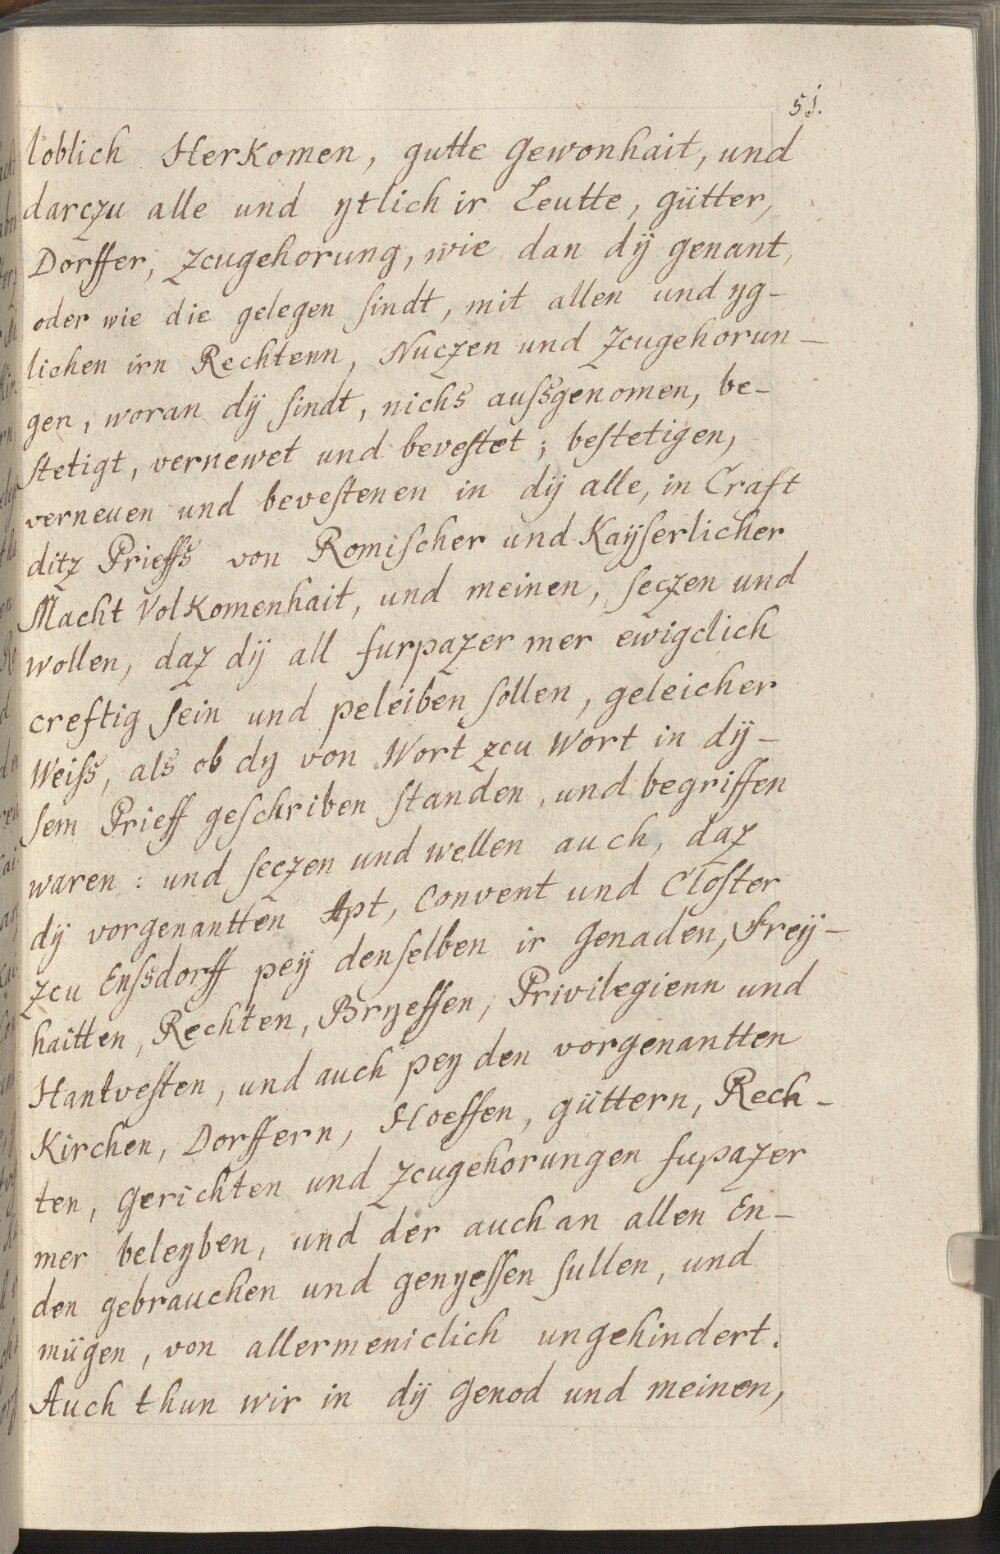 51.
loblich HerKomen, gutte gewonhait, und
darczu alle und ytlich ir Leutte, gütter,
Dorffer, Zcugehorung, wie dan dÿ genant,
oder wie die gelegen ſindt, mit allen und yg-
lichen irn Rechtenn, Nuczen und Zcugehorun-
gen, woran dÿ ſindt, nichs auſsgenomen, be-
ſtetigt, vernewet und beveſtet; beſtetigen,
verneuen und beveſtenen in dÿ alle, in Craft
ditz Prieffs von Romiſcher und Kayſerlicher
Macht VolKomenhait, und meinen, ſeczen und
wollen, daz dÿ all furpazer mer ewigclich
creftig ſein und peleiben ſollen, geleicher
Weiſs, als ob dy von Wort zcu Wort in dÿ-
ſem Prieff geſchriben ſtanden, und begriffen
waren: und ſeczen und wellen auch, daz
dÿ vorgenantten Apt, Convent und Cloſter
zcu Enſsdorff peÿ denſelben ir genaden, Freÿ-
haitten, Rechten, Bryeffen, Privilegienn und
Hantveſten, und auch pey den vorgenantten
Kirchen, Dorffern, Hoeffen, güttern, Rech-
ten, gerichten und Zcugehorungen fupazer
mer beleyben, und der auch an allen En-
den gebrauchen und genyeſſen ſullen, und
mügen, von allermeniclich ungehindert.
Auch thun wir in dÿ genod und meinen,